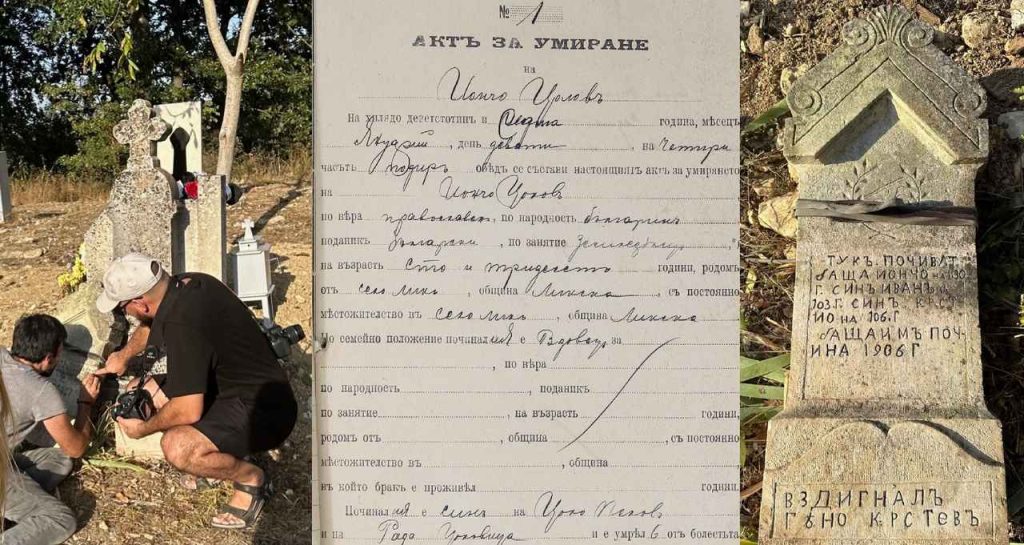 № 1
АКТЪ ЗА УМИРАНЕ
на
Цоловъ
На хилядо деветстотин и седма година, мѣсец
день девети, на Четири
часътъ подир обѣдъ се състави настоящия актъ за умирането
на Йончо Цоков
по вѣра православен, по народность българинъ
поданик български, по занятие
на възрасть сто и тридесеть години, родомъ
от село, община, съ постоянно
мѣстожителство въ село, община
По семейно положение починалия е Вдовецъ за
, по вѣра
по народность, поданик
по занятие, на възрасть години,
родомъ отъ, община, съ постоянно
мѣстожителство въ, община
въ който бракъ е проживѣл години.
Починалия е синъ на Цоко
и на Рада Цоковица и е умрѣлъ от болестьта
ТУКЪ ПОЧИВАТ
БАЩА ЙОНЧО НА 130
Г. СИНЪ ИВАНЪ Н
103 Г. СИНЪ КРСТ
Ю НА 106. Г
БАЩА ИМЪ ПОЧ
ИНА 1906 Г
ВЗДИГНАЛЪ
ГЕНО КРСТЕВЪ